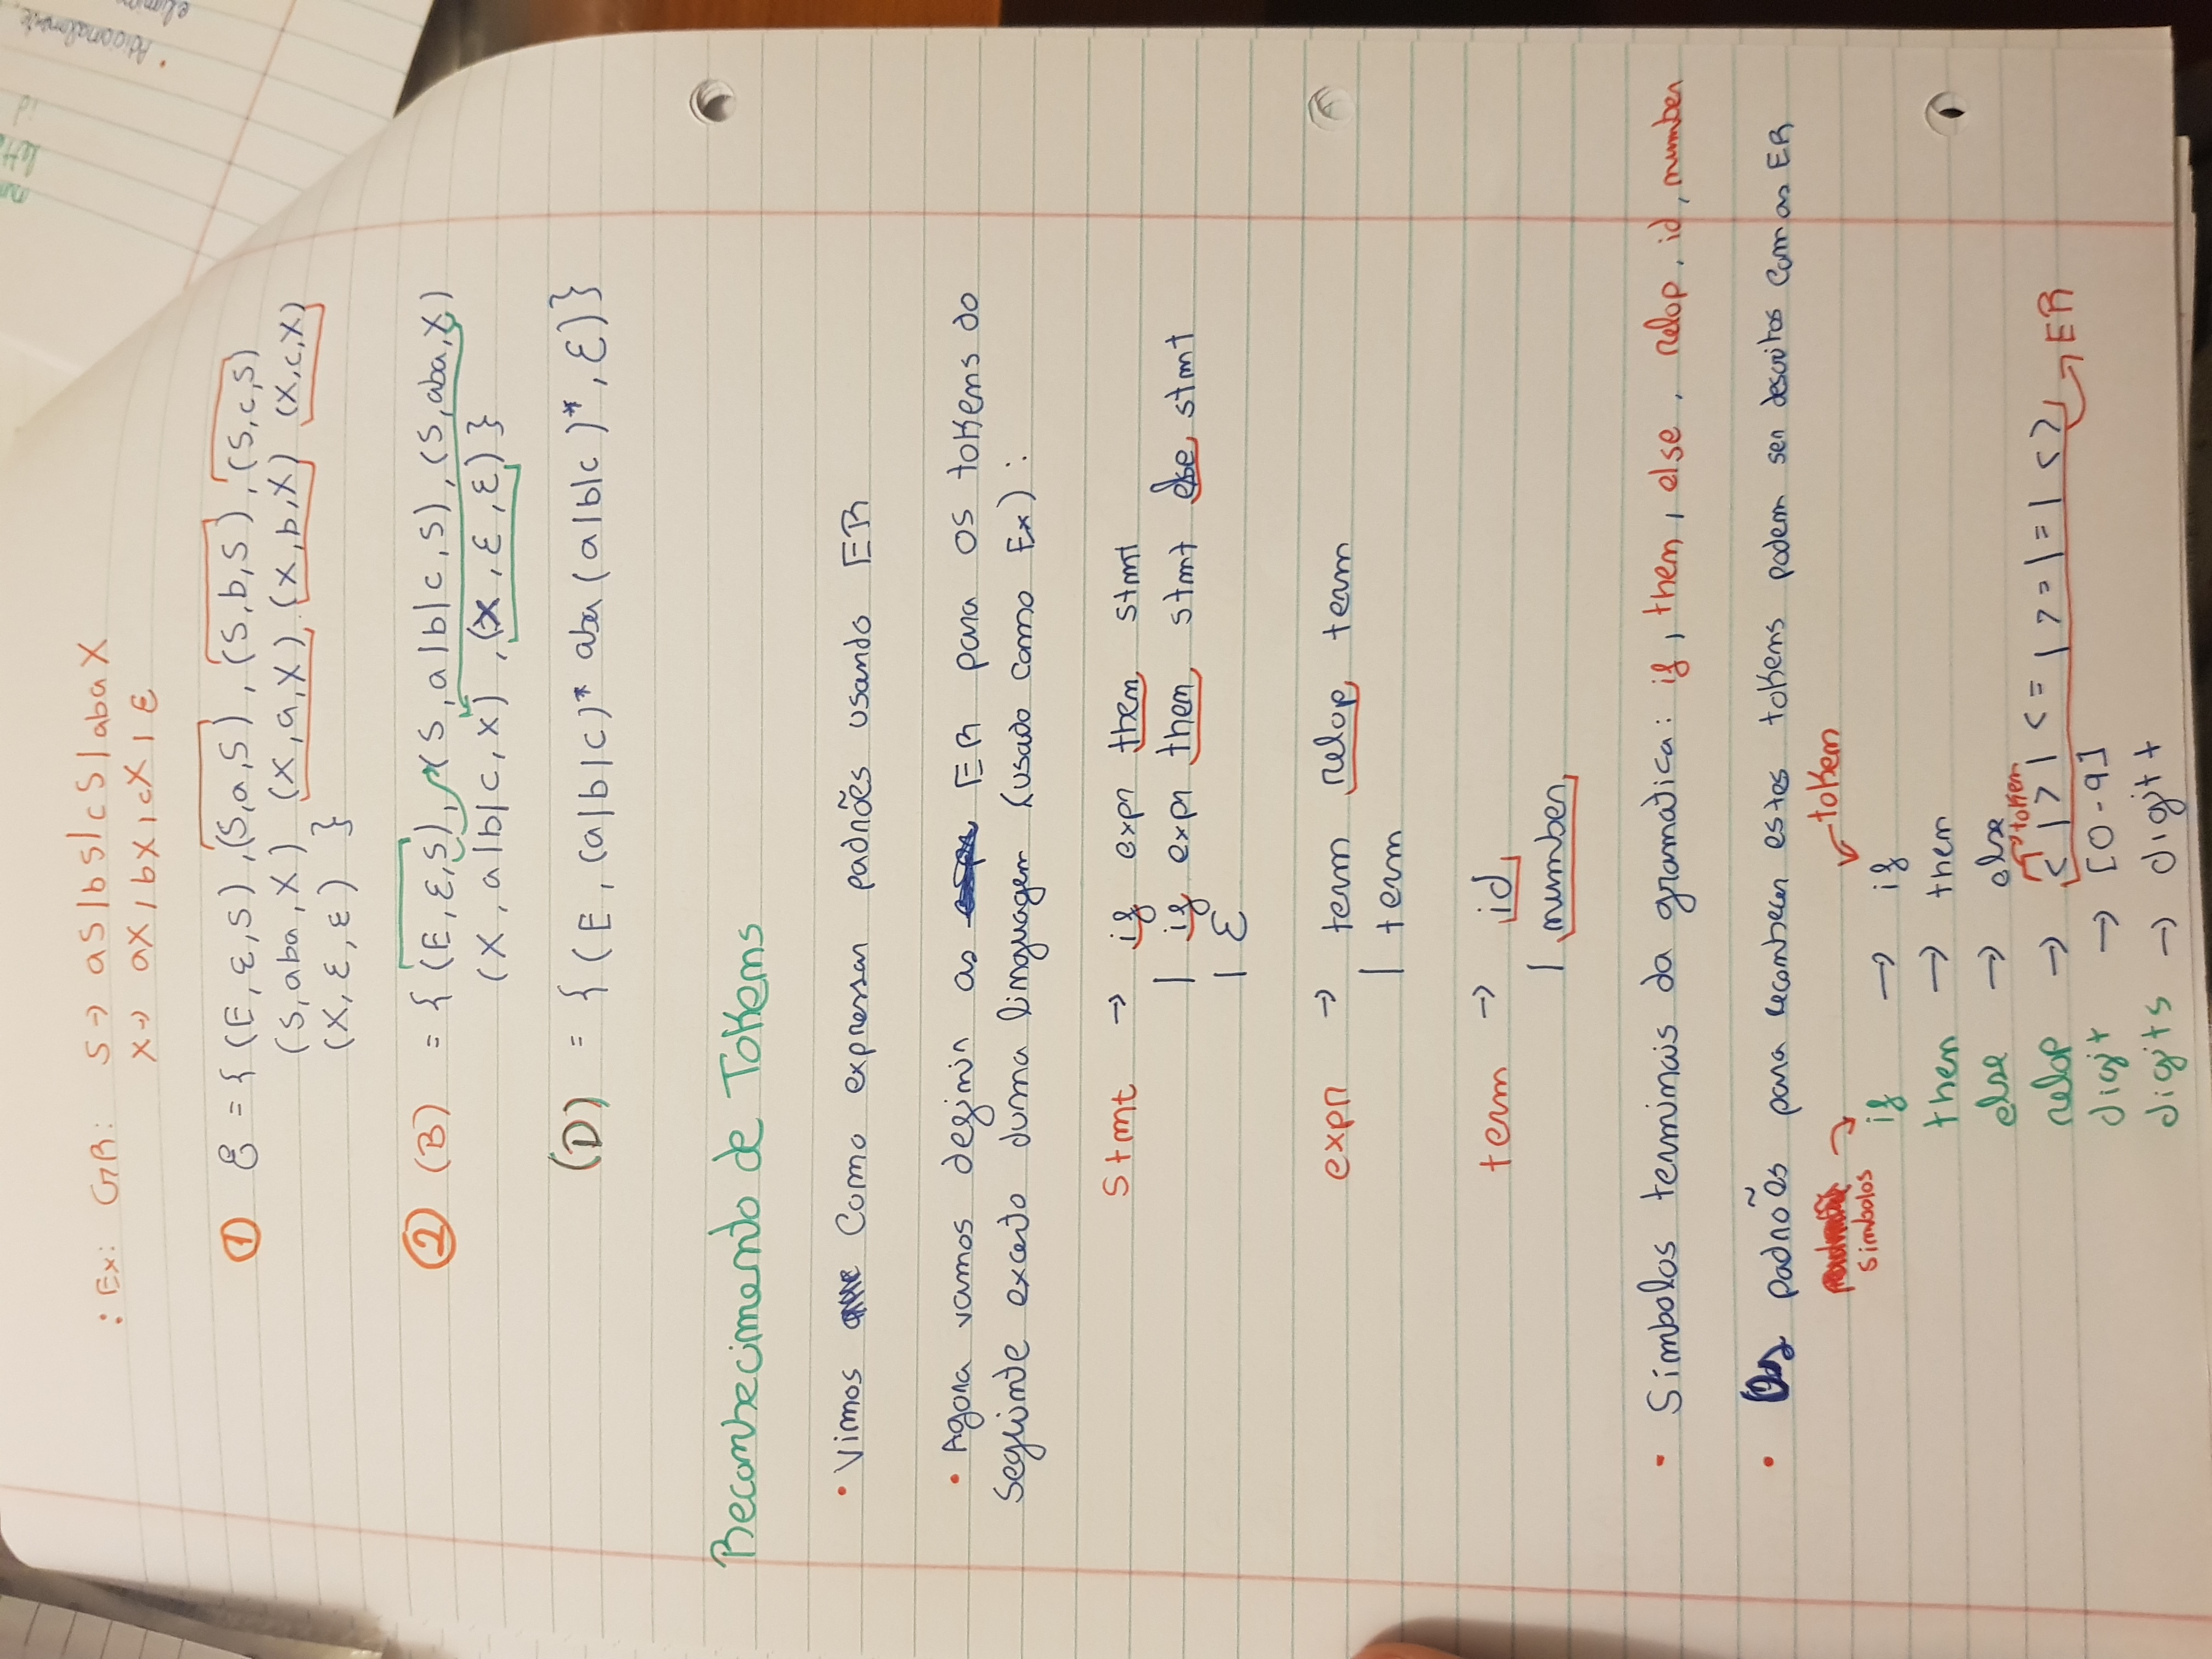 : Ex: GR: S → aS | bS | cS | abaX
X → aX | bX | cX | ε
① ℰ = { (E, ε, S) , (S, a, S) , (S, b, S) , (S, c, S)
(S, aba, X) (X, a, X) (X, b, X) (X, c, X)
(X, ε, ε) }
② (B) = { (E, ε, S), (S, a|b|c, S), (S, aba, X)
(X, a|b|c, X) , (X, ε, ε) }
(D) = { (E, (a|b|c)* aba (a|b|c)*, ε) }
Reconhecimento de Tokens
• Vimos Como expressar padrões usando ER
• Agora vamos definir as ER para os tokens do
seguinte excerto duma linguagem (usado como Ex) :
Stmt → if expr then stmt
| if expr then stmt else stmt
| ε
expr → term relop term
| term
term → id
| number
• Símbolos terminais da gramatica: if, then, else, relop, id, number
• Os padrões para reconhecer estes tokens podem ser descritos com as ER
simbolos token
if → if
then → then
else → else
token
relop → < | > | <= | >= | = | <> → ER
digit → [0-9]
digits → digit+
num
lett
id
• Adicionalmente,